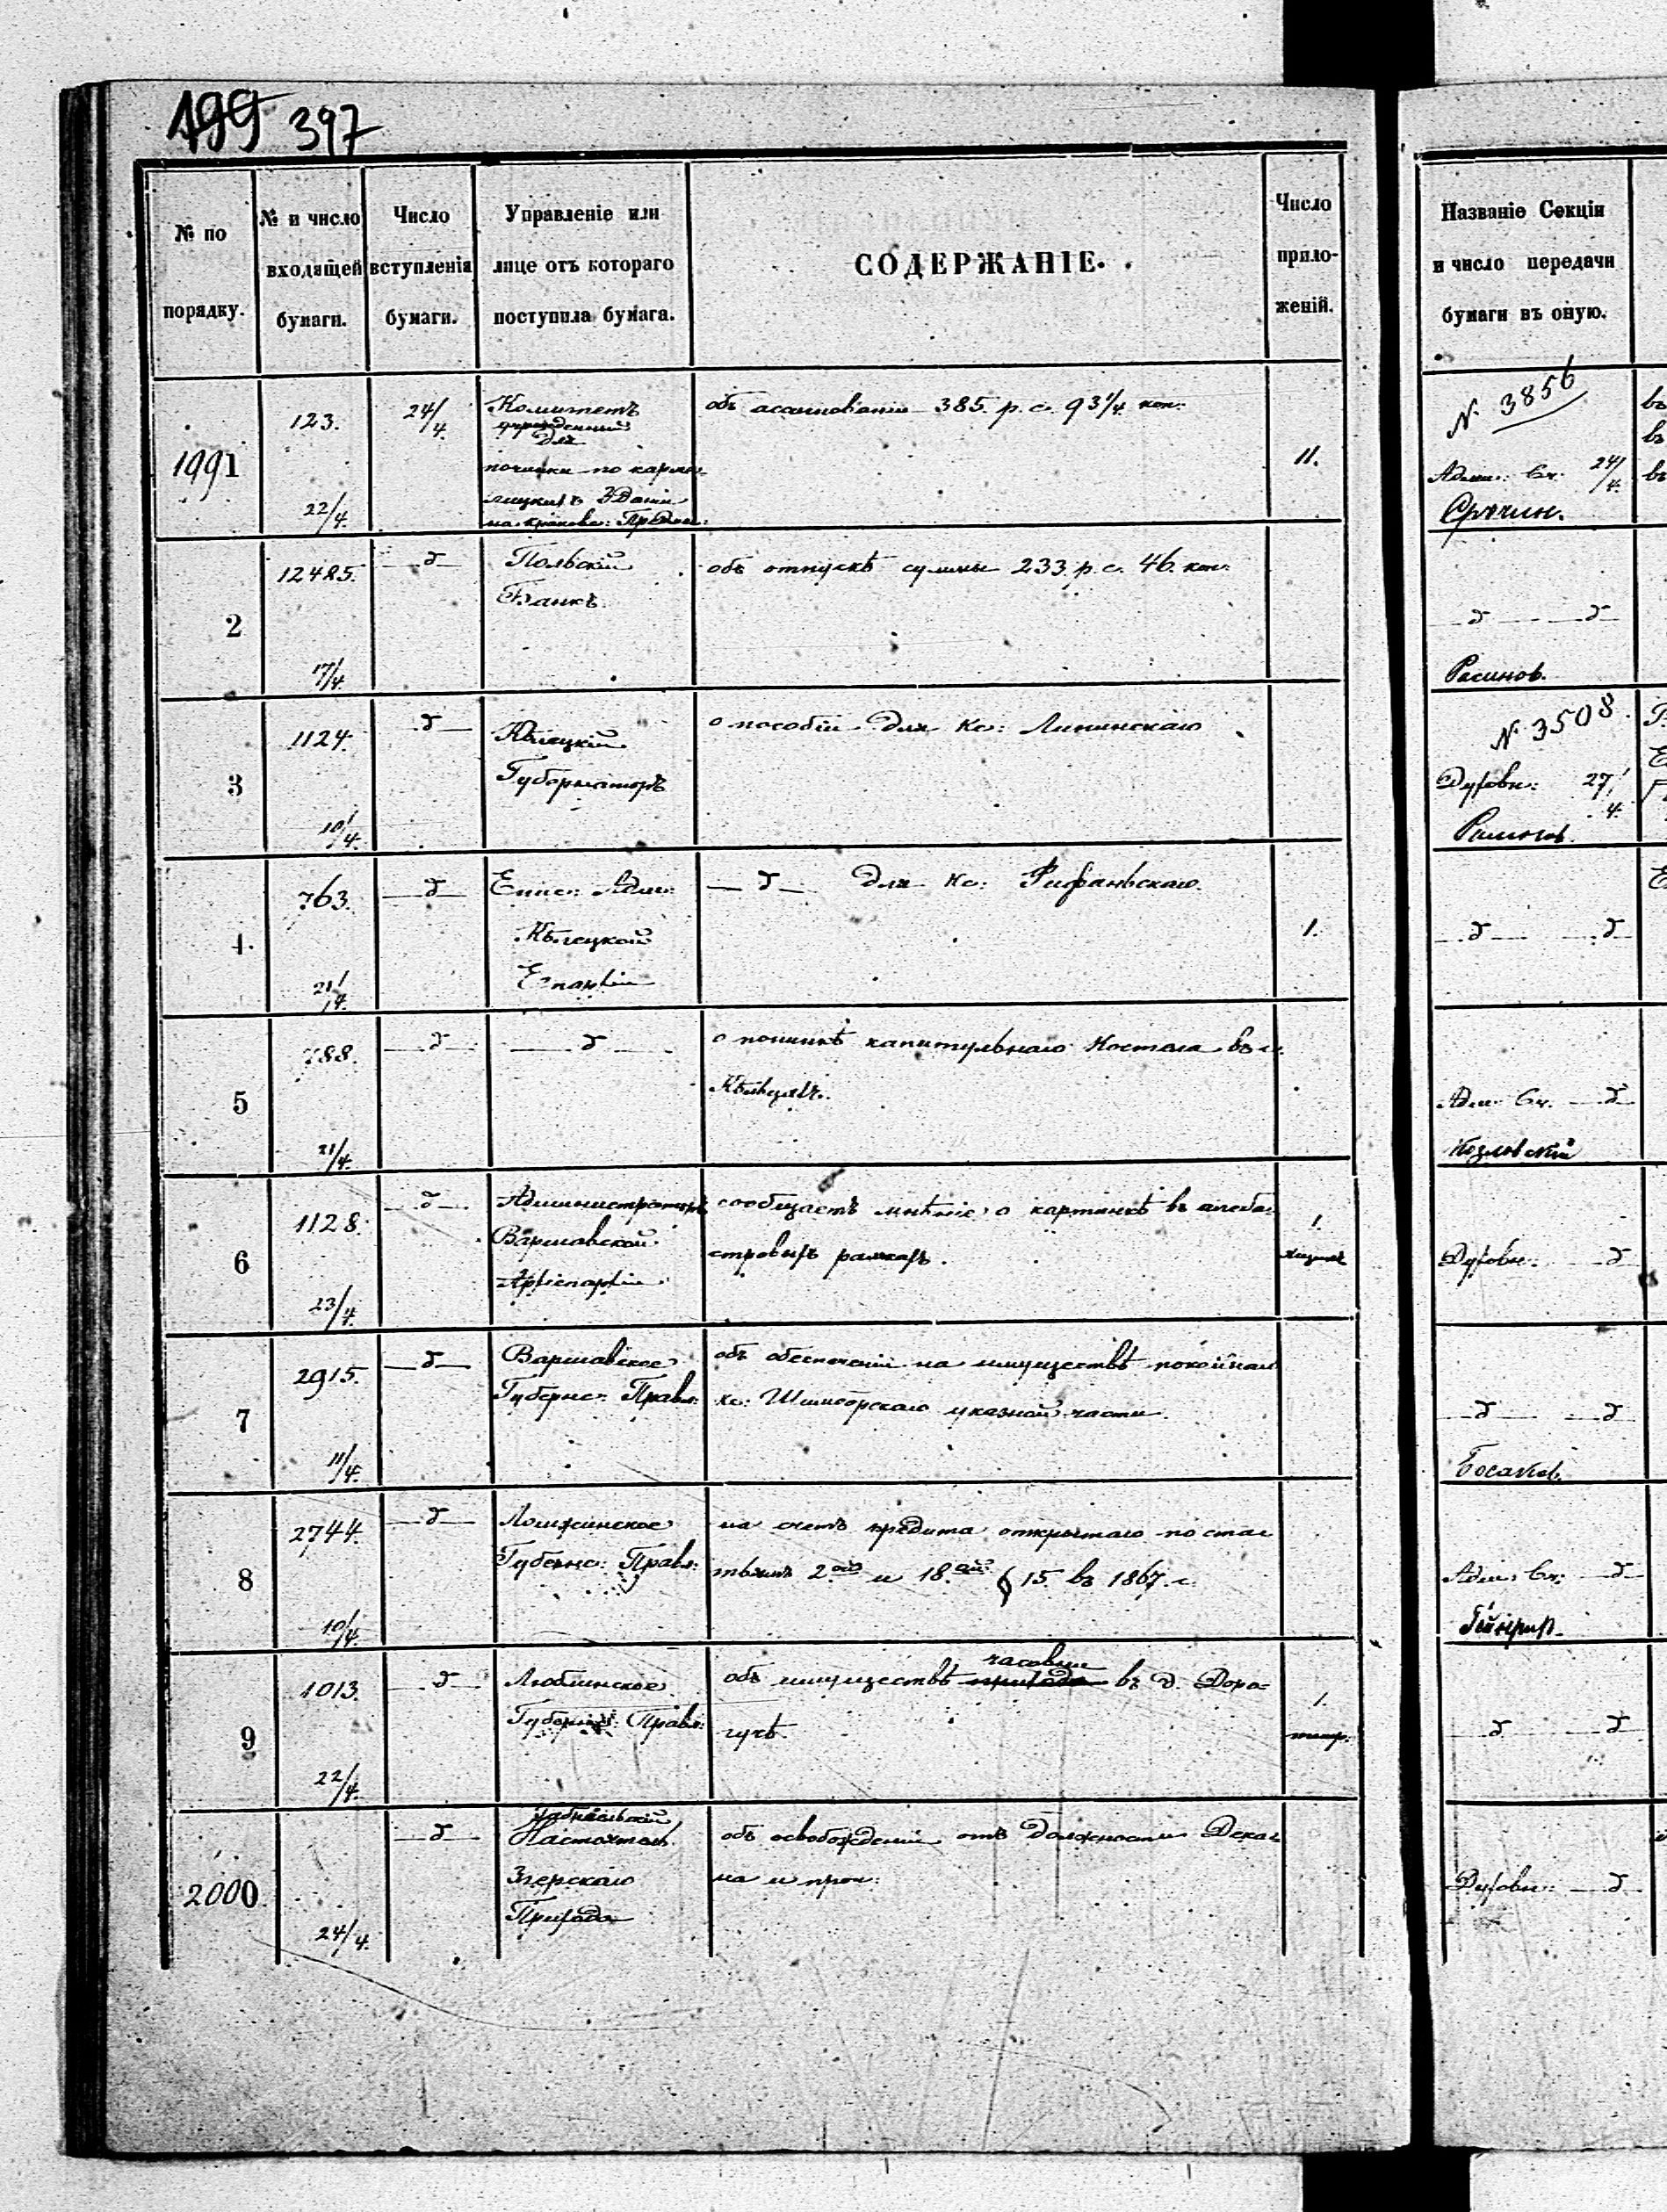 199 397
№ по порядку.
№ и число входящей бумаги.
Число вступленія бумаги.
Управленіе или лице отъ котораго поступила бумага.
СОДЕРЖАНІЕ.
Число приложеній.
Названіе Секціи и число передачи бумаги въ оную.
1991
123.
22/4.
24/4.
Комитетъ
учрежденный
для
починки по карме-
лицкихъ зданій
на Краковс: Предм:
объ ассигнованіи 385. р. с. 93 1/4 коп:
11.
N. 3856
Адми: Сч. 24/4.
2
12485.
17/4.
д
Польскій
Банкъ.
объ отпускѣ суммы 233. р. с. 46. коп:
д д
3
1124.
10/4.
д
Кѣлецкій
Губернаторъ
о пособіи для Кс: Липинскаго
N. 3508.
Духовн: 27/4.
4.
763.
21/4.
д
Епис: Адм:
Кѣлецкой
Епархіи
д для Кс:
1.
д д
5
788.
21/4.
д
д
о починкѣ капитульнаго костела въ г.
Кѣльцахъ.
Адм: Сч. д
Козловскій
6
1128.
23/4.
д
Администраторъ
Варшавской
Архіепархіи
сообщаетъ мнѣніе о картинкѣ въ алеба-
стровыхъ рамкахъ.
1.
Духовн: д
7
2915.
11/4.
д
Варшавское
Губернс: Правл:
объ обезпеченіи на имуществѣ покойнаго
кс: указной части.
д д
8
2744.
10/4.
д
Ломжинское
Губернс: Правл:
на счетъ кредита открытаго по ста-
тьямъ 2ой и 18.ой § 15 въ 1867. г.
Адм: Сч: д
9
1013.
22/4.
д
Люблинское
Губернс: Правл:
часовни
объ имуществѣ прихода въ д. Доро-
гучѣ.
1.
д д
2000.
24/4.
д
Настоятель
Згерскаго
Прихода
объ освобожденіи отъ должности Дека-
на и проч:
Духовн: д